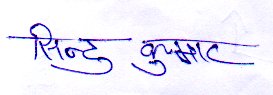 सिन्टु कुमार